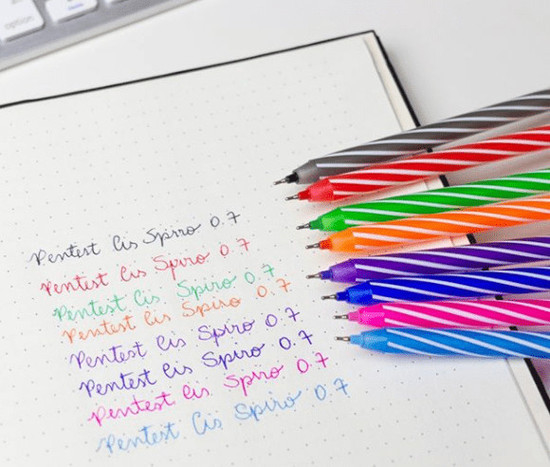 Pentest Cis Spiro 0.7
Pentest Cis Spiro 0.7
Pentest Cis Spiro 0.7
Pentest Cis Spiro 0.7
Pentest Cis Spiro 0.7
Pentest Cis Spiro 0.7
Pentest Cis Spiro 0.7
Pentest Cis Spiro 0.7
option